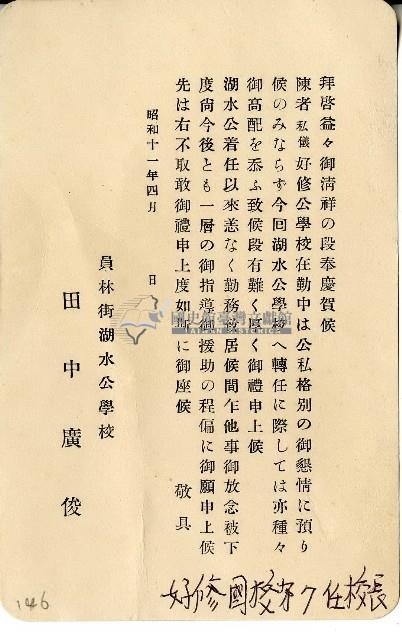 拜啓益々御淸祥の段奉慶賀候
陳者私儀好修公學校在勤中は公私格別の御懇情に預り
候のみならず今回湖水公學校へ轉任に際しては亦種々
御高配を忝ふ致候段有難く厚く御禮申上候
湖水公着任以來恙なく勤務致居候間乍他事御放念被下
度尙今後とも一層の御指導御援助の程偏に御願申上候
先は右不取敢御禮申上度如斯に御座候 敬具
昭和十一年四月 日
員林街湖水公學校
田中廣俊
好修國校第7任校長
146
國史館臺灣文獻館
TAIWAN HISTORICA